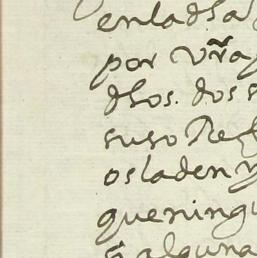 enladha
por vr̃a
dhos. dos s
suso Ref
osladen y
queningu
q̃ alguna